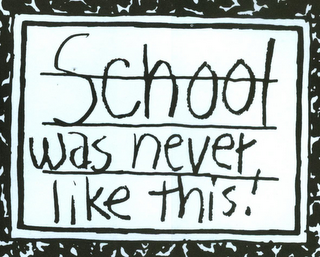 School
was never
like this!